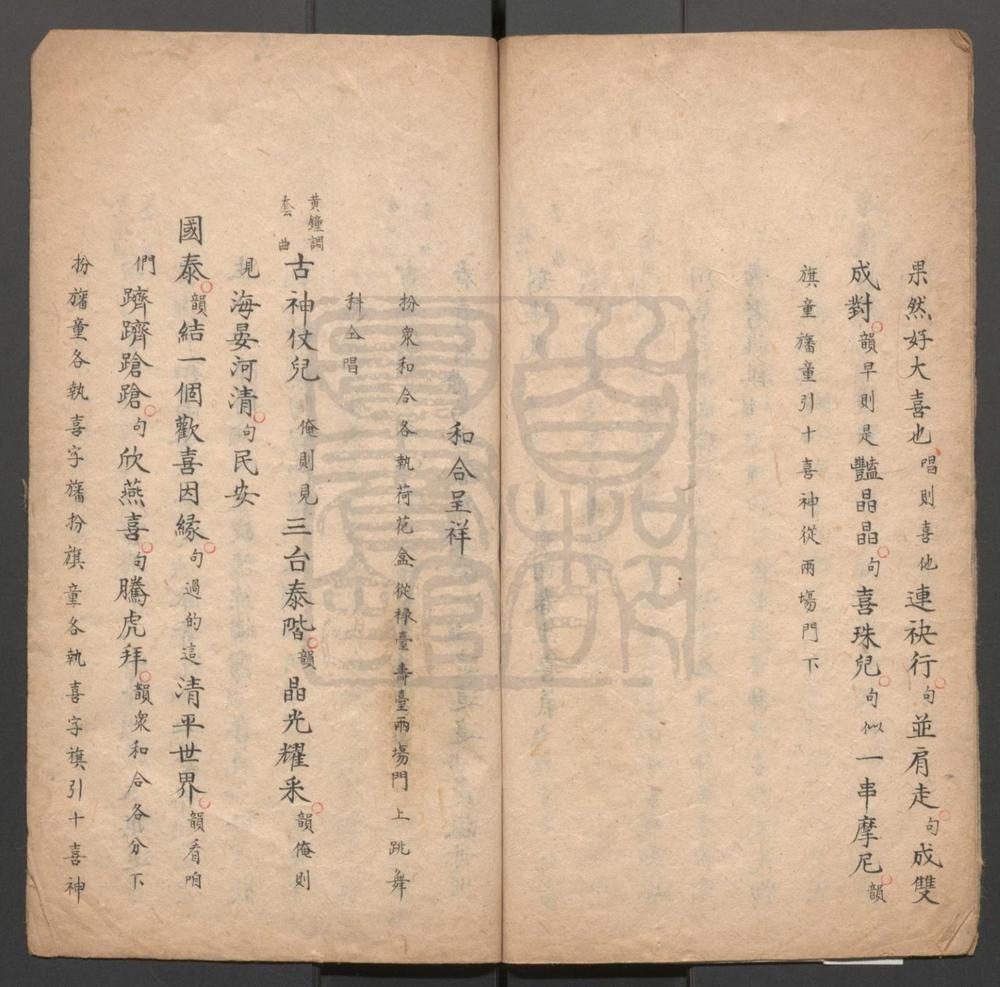 果然好大喜也唱則喜他連袂行句並肩走句成雙
成對韻早則是豔晶晶句喜珠兒句似一串摩尼韻
旗童旛童引十喜神從兩場門下
和合呈祥
扮衆和合各執荷花盒從祿臺壽臺兩場門上跳舞
科仝唱
黃鐘調
套曲
古神仗兒俺則見三台泰階韻晶光耀采韻俺則
見海晏河清句民安
國泰韻結一個歡喜因緣句過的這清平世界韻看咱
們躋躋蹌蹌句欣燕喜句騰虎拜韻衆和合各分下
扮旛童各執喜字旛扮旗童各執喜字旗引十喜神